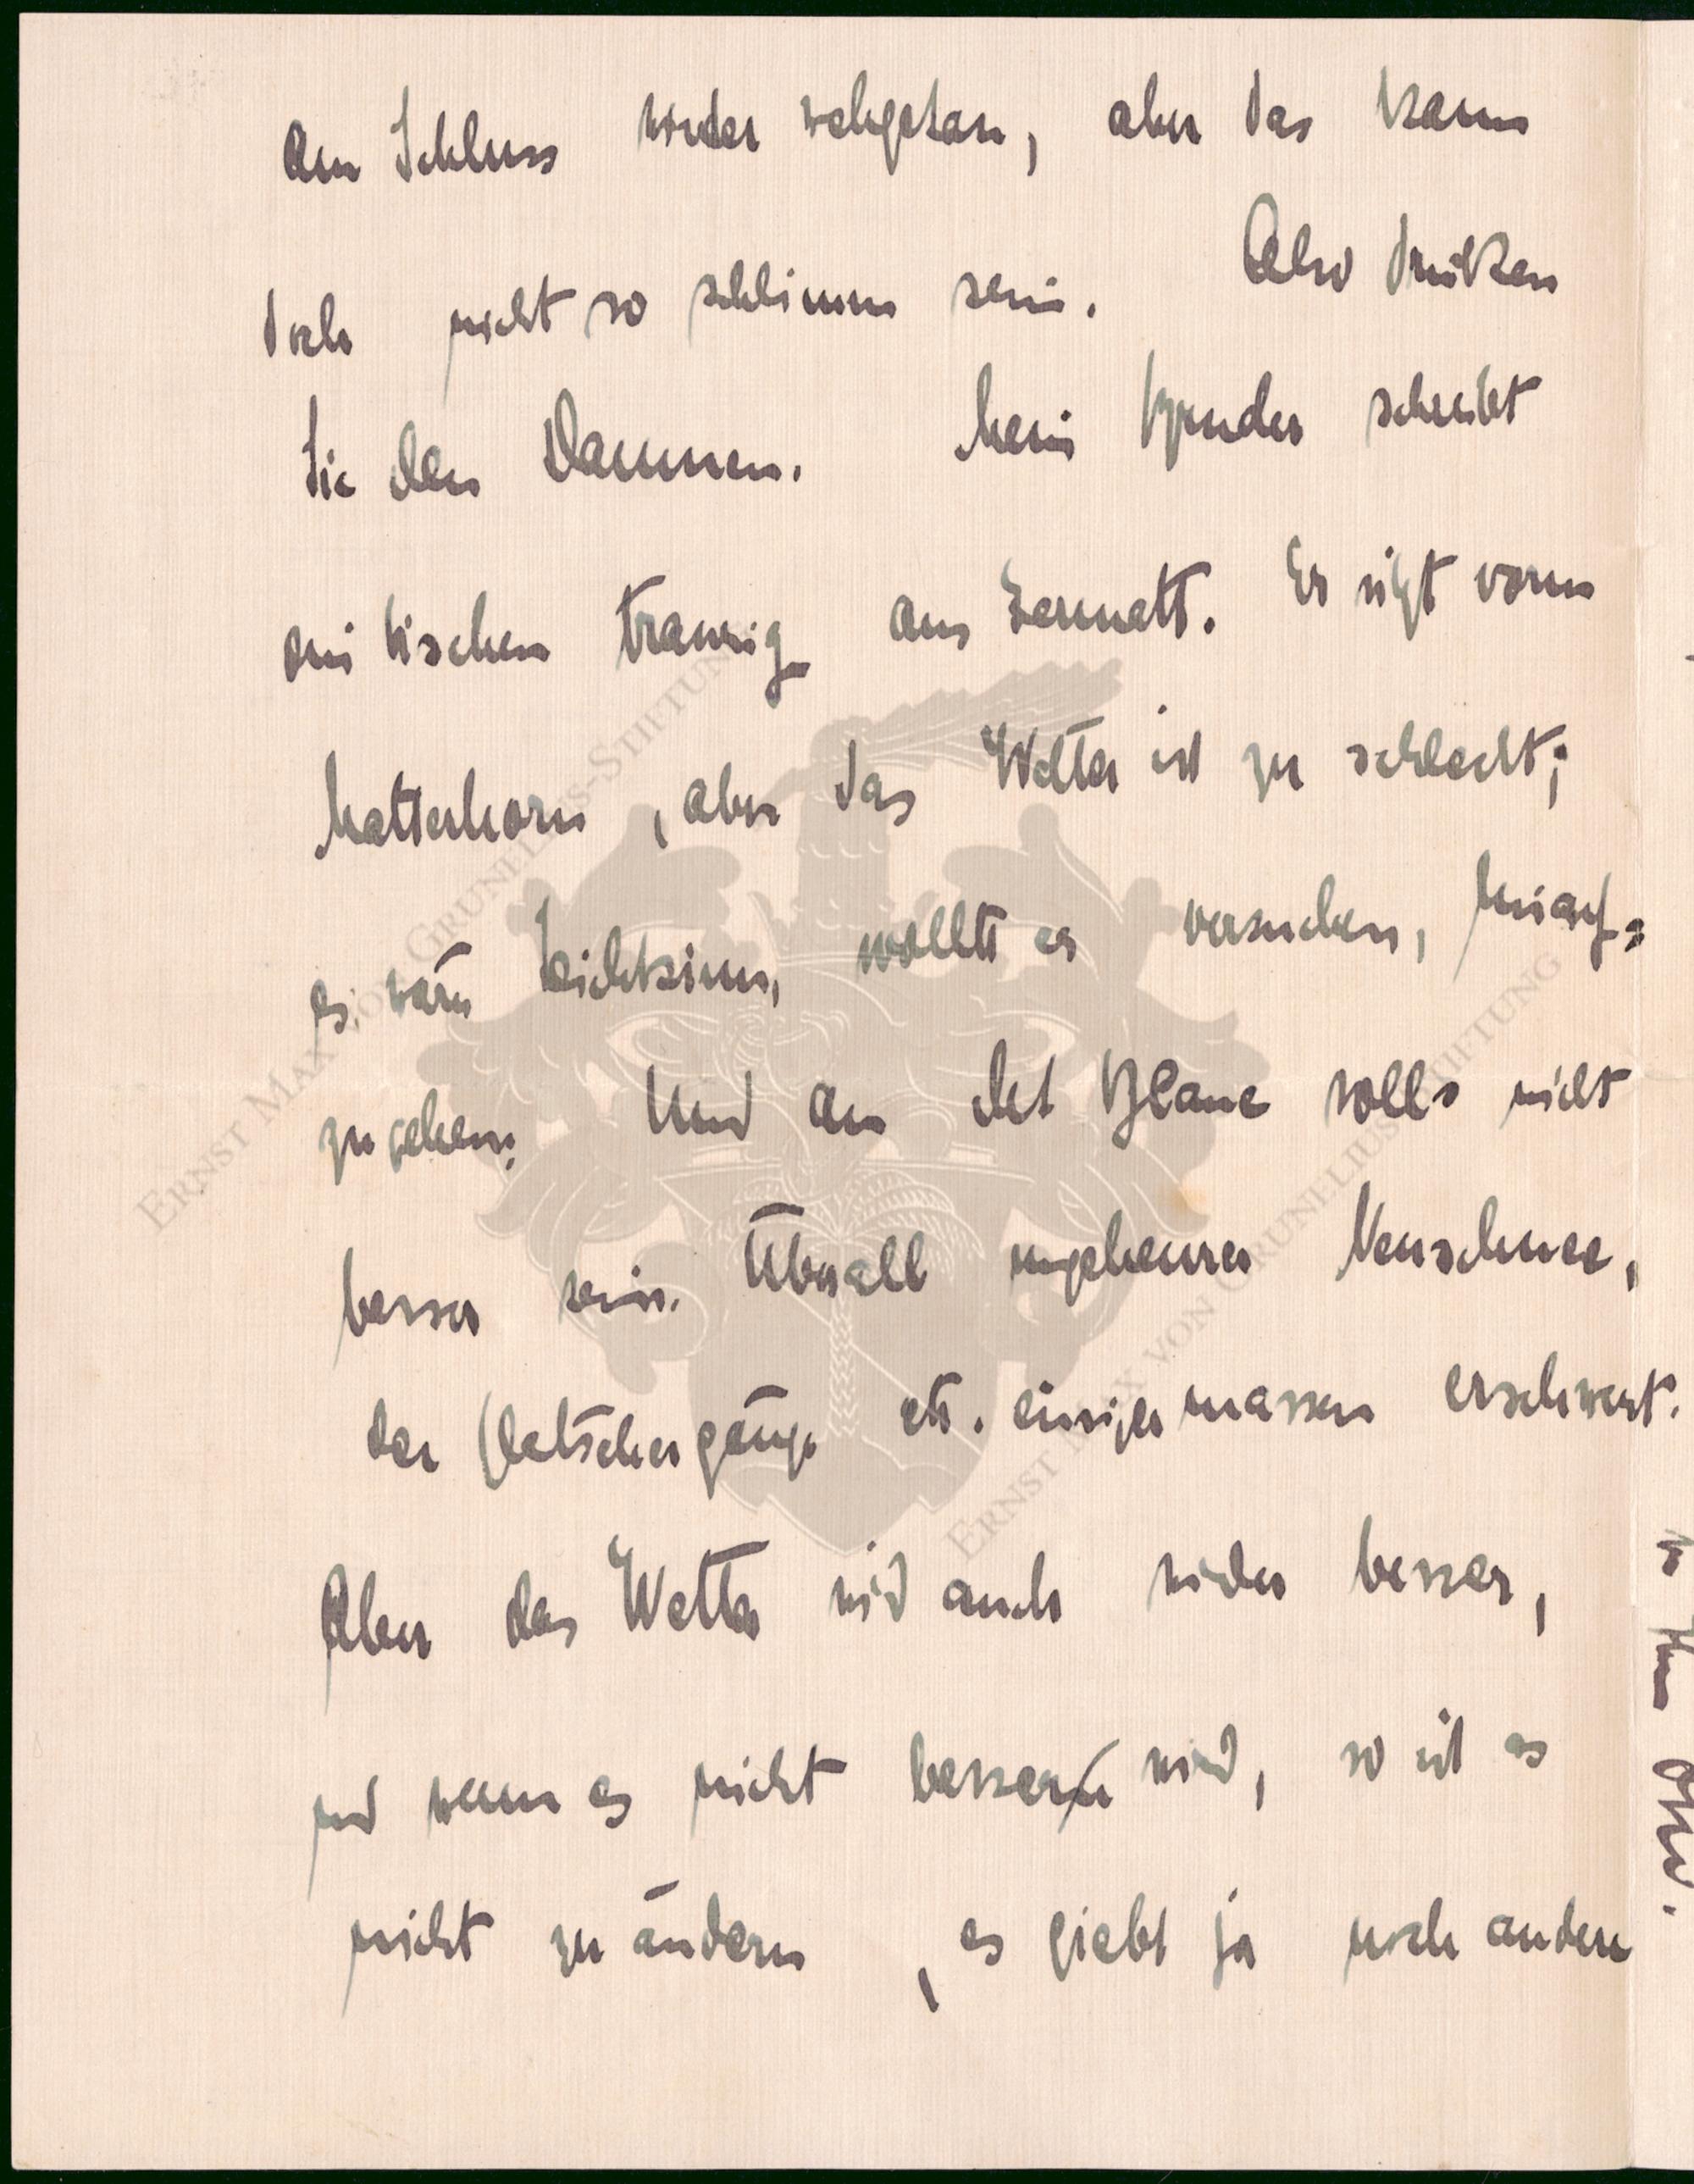 am Schluss wieder wehgetan, aber das kann
doch nicht so schlimm sein. Also drücken
Sie den Daumen. Mein Bruder schreibt
ein bischen traurig aus Zermatt. Er sitzt vorm
Matterhorn, aber das Wetter ist zu schlecht;
es wär Leichtsinn, wollte er versuchen, hinauf=
zugehen. Und am Mt Blanc solls nicht
besser sein. Überall ungeheurer Neuschnee,
der Gletschergänge etc. einigermassen erschwert.
Aber das Wetter wird auch wieder besser,
und wenn es nicht besser wird, so ist es
nicht zu ändern, es giebt ja noch andere
ERNST MAX VON GRUNELIUS-STIFTUNG
ERNST MAX VON GRUNELIUS-STIFTUNG